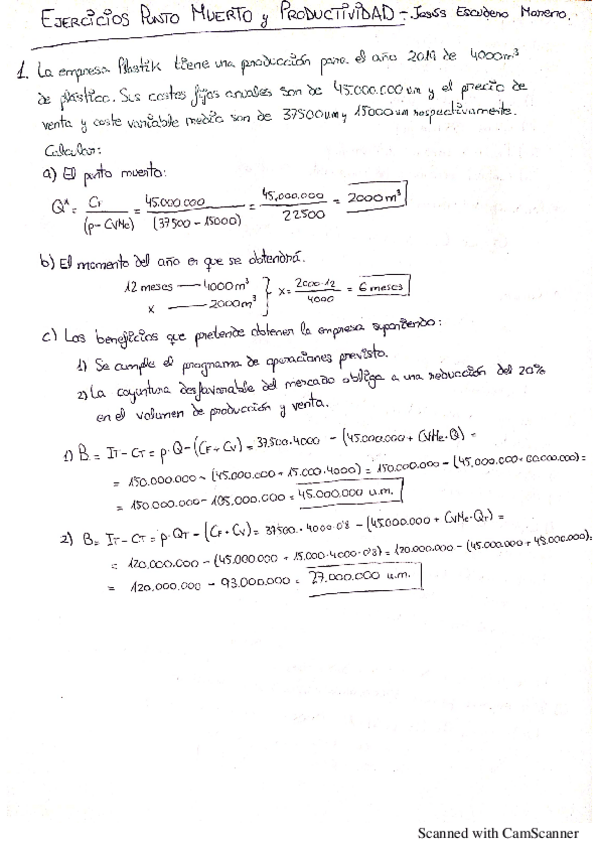 EJERCICIOS PUNTO MUERTO y PRODUCTIVIDAD - Jesús Escudero Moreno.
1. La empresa Plastik tiene una producción para el año 2019 de 4000m³
de plástico. Sus costes fijos anuales son de 45.000.000 um y el precio de
venta y coste variable medio son de 37500um y 15000 um respectivamente.
Calcular:
a) El punto muerto:
Q* = CF / (p - CVMe) = 45.000.000 / (37500 - 15000) = 45.000.000 / 22500 = 2000m³
b) El momento del año en que se obtendrá.
12 meses — 4000m³
x — 2000m³ } x = 2000·12 / 4000 = 6 meses
c) Los beneficios que pretende obtener la empresa suponiendo:
1) Se cumple el programa de operaciones previsto.
2) La coyuntura desfavorable del mercado obliga a una reducción del 20%
en el volumen de producción y venta.
1) B = IT - CT = p·Q - (CF + CV) = 37500·4000 - (45.000.000 + CVMe·Q) =
= 150.000.000 - (45.000.000 + 15.000·4000) = 150.000.000 - (45.000.000 + 60.000.000) =
= 150.000.000 - 105.000.000 = 45.000.000 u.m.
2) B = IT - CT = p·QT - (CF + CV) = 37500·4000·0'8 - (45.000.000 + CVMe·QT) =
= 120.000.000 - (45.000.000 + 15.000·4000·0'8) = 120.000.000 - (45.000.000 + 48.000.000) =
= 120.000.000 - 93.000.000 = 27.000.000 u.m.
Scanned with CamScanner